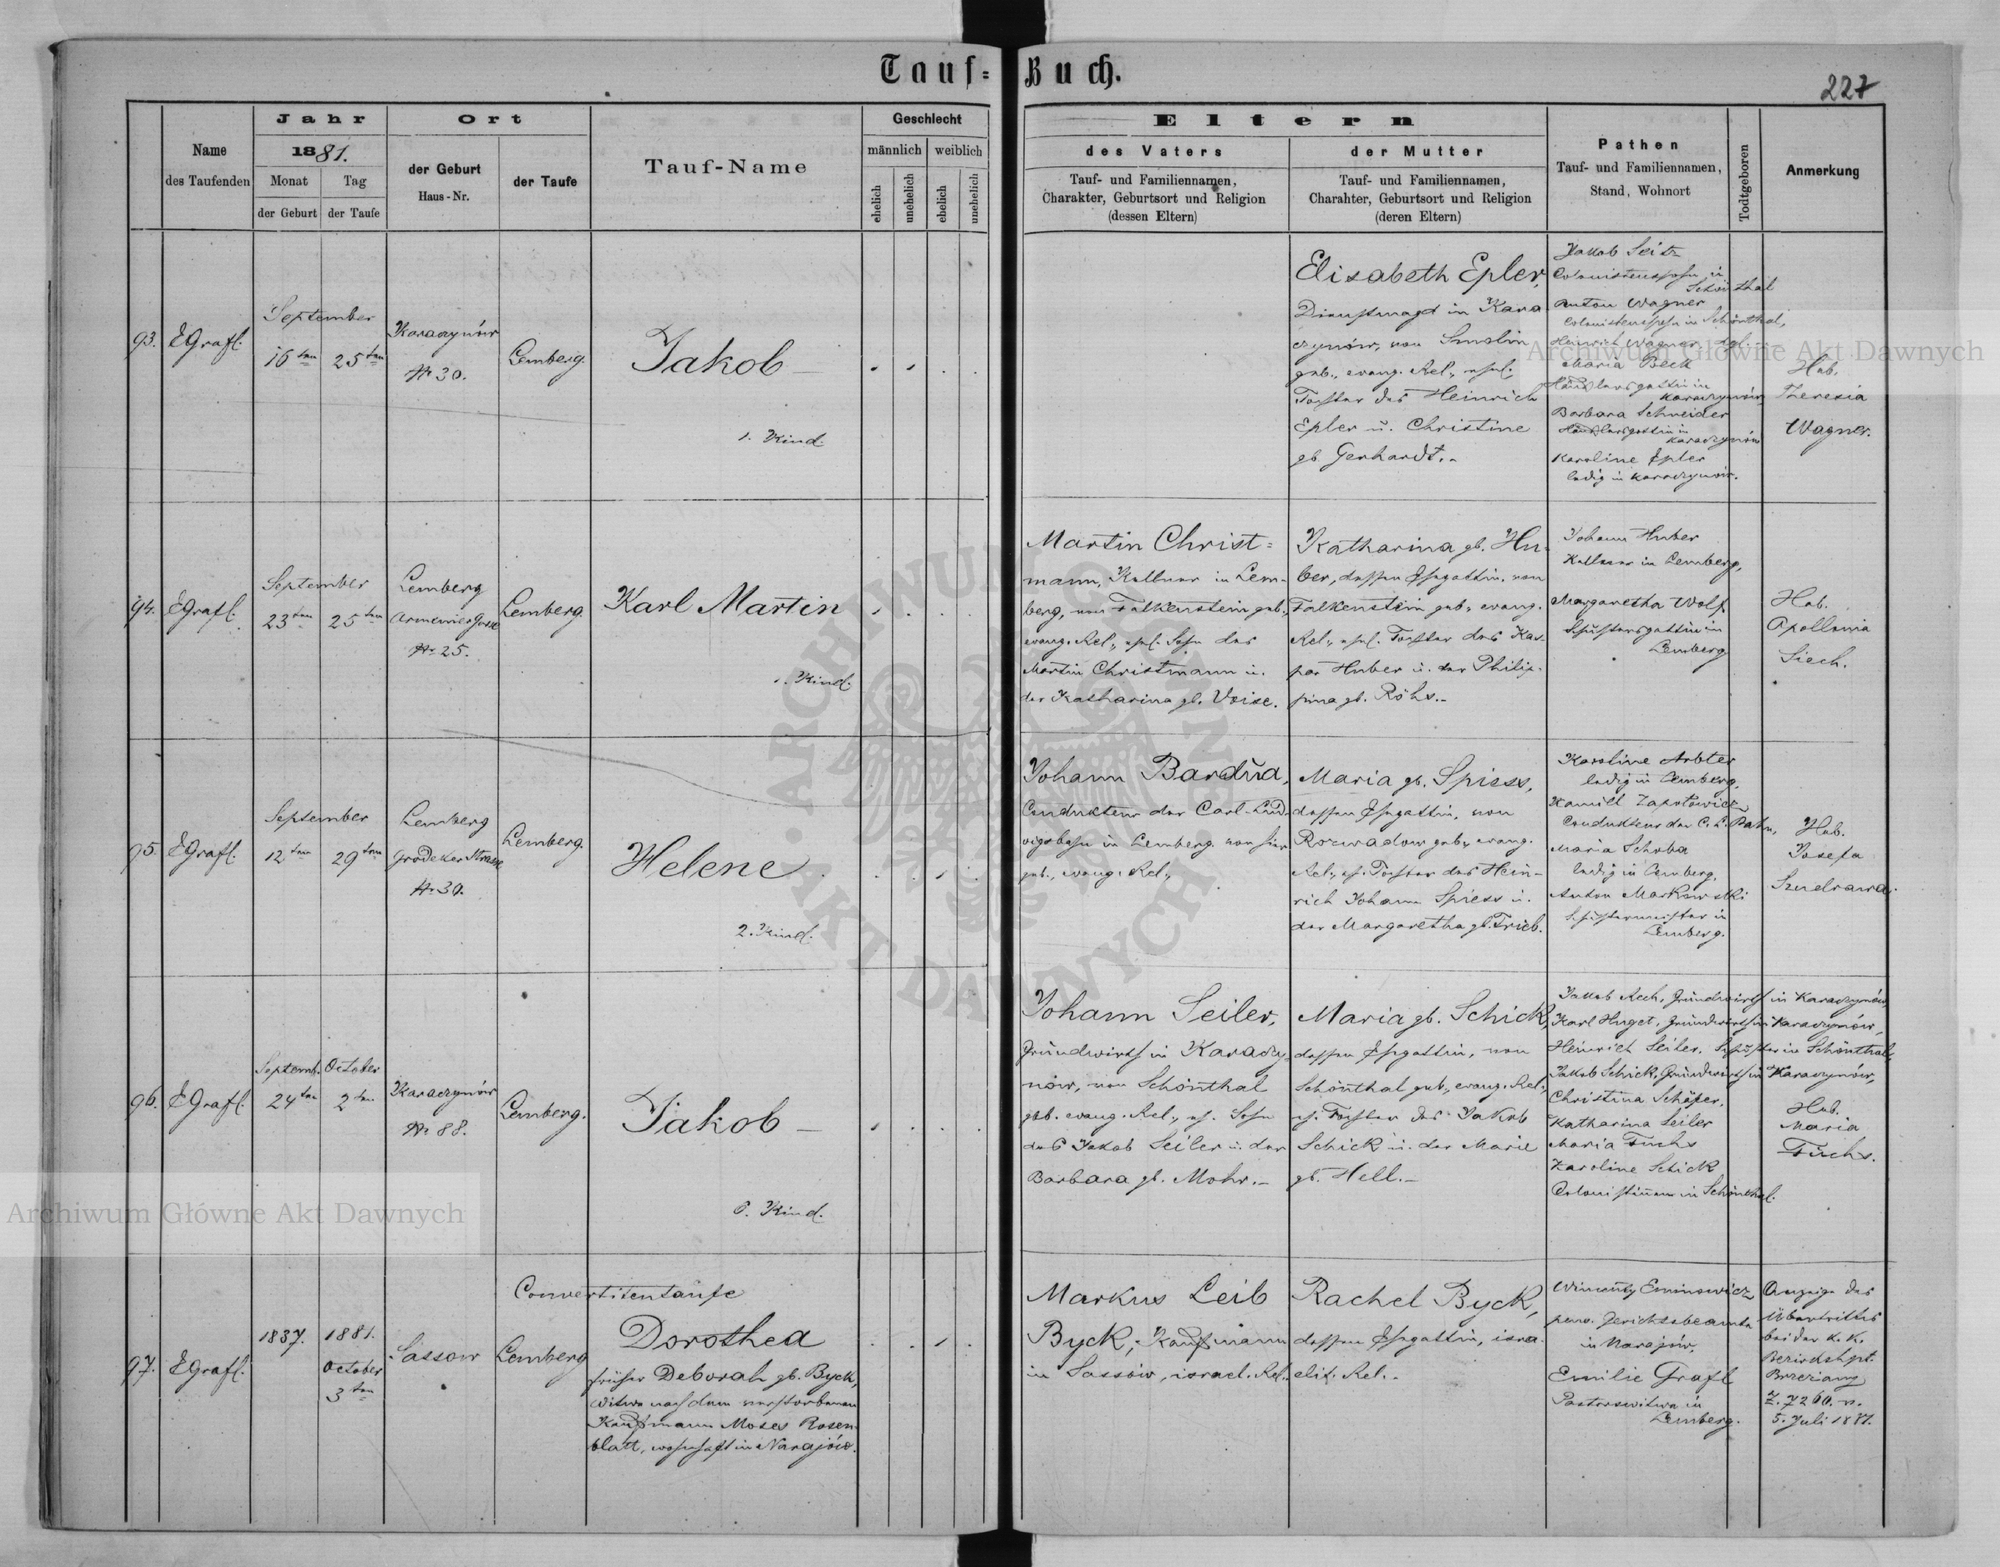 Tauf=Buch.
227
Name
des Taufenden
Jahr
1881.
Monat
der Geburt
Tag
der Taufe
Ort
der Geburt
Haus-Nr.
der Taufe
Tauf-Name
Geschlecht
männlich
weiblich
ehelich
unehelich
ehelich
unehelich
Eltern
des Vaters
Tauf- und Familiennamen,
Charakter, Geburtsort und Religion
(dessen Eltern)
der Mutter
Tauf- und Familiennamen,
Charahter, Geburtsort und Religion
(deren Eltern)
Pathen
Tauf- und Familiennamen,
Stand, Wohnort
Todtgeboren
Anmerkung
93.
EGrafl.
September
16ten
25ten
Karaczynów
Nr 30.
Lemberg.
Jakob
1. Kind
Elisabeth Epler,
Dienstmagd in Kara
czynów, von Smolin
geb., evang. Rel., ehel.
Tochter des Heinrich
Epler u. Christine
gb. Gerhardt.
Jakob Seitz
Colonistenssohn in
Schönthal
Anton Wagner
Colonistenssohn in Schönthal,
Heinrich Wagner
Maria Beck
Karaczynów
Barbara Schneider
Karaczynów
Karoline Epler
ledig in Karaczynów.
Heb.
Theresia
Wagner.
94.
EGrafl.
September
23ten
25ten
Lemberg
Armenier Gasse
Nr 25.
Lemberg.
Karl Martin
1. Kind.
Martin Christ=
mann, Kellner in Lem-
berg, von Falkenstein geb.,
evang. Rel., ehel. Sohn des
Martin Christmann u.
der Katharina gb. Weise.
Katharina gb. Hu-
ber, dessen Ehegattin, von
Falkenstein geb., evang.
Rel., ehel. Tochter des Kas-
par Huber u. der Philip-
pina gb. Röhs.
Johann Huber
Kellner in Lemberg,
Margaretha Wolf
Schustersgattin in
Lemberg
Heb.
Apollonia
Siech.
95.
EGrafl.
September
12ten
29ten
Lemberg
Grodeker Strasse
Nr 30.
Lemberg.
Helene
2. Kind.
Johann Bardua,
Condukteur der Carl-Lud
wigsbahn in Lemberg, von hier
geb., evang. Rel.,
Maria gb. Spiess,
dessen Ehegattin, von
Rozwadow geb., evang.
Rel., eh. Tochter des Hein-
rich Johann Spiess u.
der Margaretha gb. Trieb.
Karoline Arbter
ledig in Lemberg,
Kamill Zapotowicz
Condukteur der C. L. Bahn,
Maria Schoba
ledig in Lemberg,
Anton Markowski
Schustermeister in
Lemberg.
Heb.
Josefa
Szudrawa.
96.
EGrafl.
Septemb.
24ten
October
2ten
Karaczynów
Nr 88.
Lemberg.
Jakob
6. Kind.
Johann Seiler,
Grundwirth in Karaczy-
nów, von Schönthal
geb. evang. Rel., eh. Sohn
des Jakob Seiler u. der
Barbara gb. Mohr.
Maria gb. Schick,
dessen Ehegattin, von
Schönthal geb., evang. Rel.,
eh. Tochter des Jakob
Schick u. der Marie
gb. Hell.
Jakob Rech, Grundwirth in Karaczynów,
Karl Huget, Grundwirth in Karaczynów,
Heinrich Seiler, Schuster in Schönthal,
Jakob Schick, Grundwirth in Karaczynów,
Christina Schäfer,
Katharina Seiler
Maria Fuchs
Karoline Schick
Colonistinnen in Schönthal.
Heb.
Maria
Fuchs.
97.
EGrafl.
1837.
1881.
October
3ten
Sassow
Lemberg
Convertitentaufe
Dorothea
früher Deborah gb. Byck,
Witwe nach dem verstorbenen
Kaufmann Moses Rosen-
blatt, wohnhaft in Narajów.
Markus Leib
Byck, Kaufmann
in Sassów, israel. Rel.
Rachel Byck,
dessen Ehegattin, isra-
elit. Rel.
Wincenty Eminowicz
pens. Gerichtsbeamte
in Narajów,
Emilie Grafl
Pastorswitwe in
Lemberg.
Anzeige des
Übertrittes
bei der k. k.
Bezirkshpt.
Brzezany
Z. 7260. v.
5. Juli 1881.
Archiwum Główne Akt Dawnych
Archiwum Główne Akt Dawnych
ARCHIWUM GŁÓWNE AKT DAWNYCH